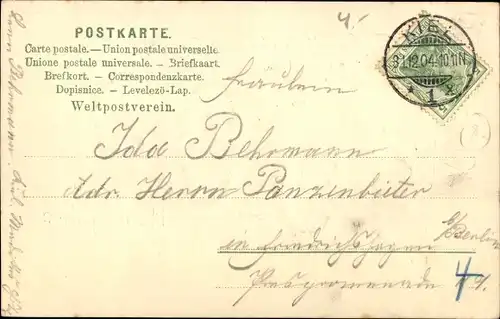 4.-
POSTKARTE.
Carte postale.—Union postale universelle
Unione postale universale. – Briefkaart.
Brefkort. – Correspondenzkarte.
Dopisnice. – Levelező-Lap.
Weltpostverein.
KIEL
31.12.04.
1
5
Fräulein
Ida Behrmann
Adr. Herrn Panzenbieter
in Friedrichshagen
b/Berlin
4